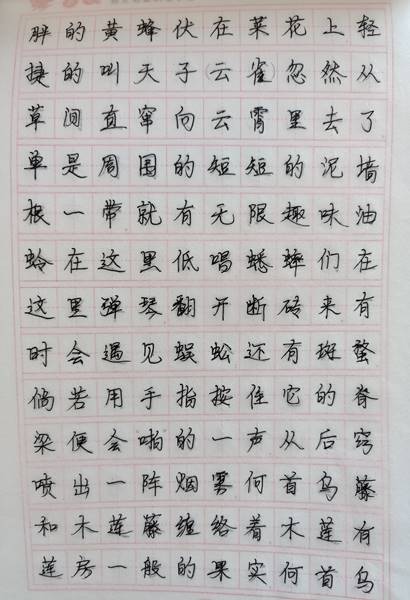 胖的黄蜂伏在菜花上轻
捷的叫天子(云雀)忽然从
草间直窜向云霄里去了
单是周围的短短的泥墙
根一带就有无限趣味油
蛉在这里低唱蟋蟀们在
这里弹琴翻开断砖来有
时会遇见蜈蚣还有斑蝥
倘若用手指按住它的脊
梁便会啪的一声从后窍
喷出一阵烟雾何首乌藤
和木莲藤缠络着木莲有
莲房一般的果实何首乌